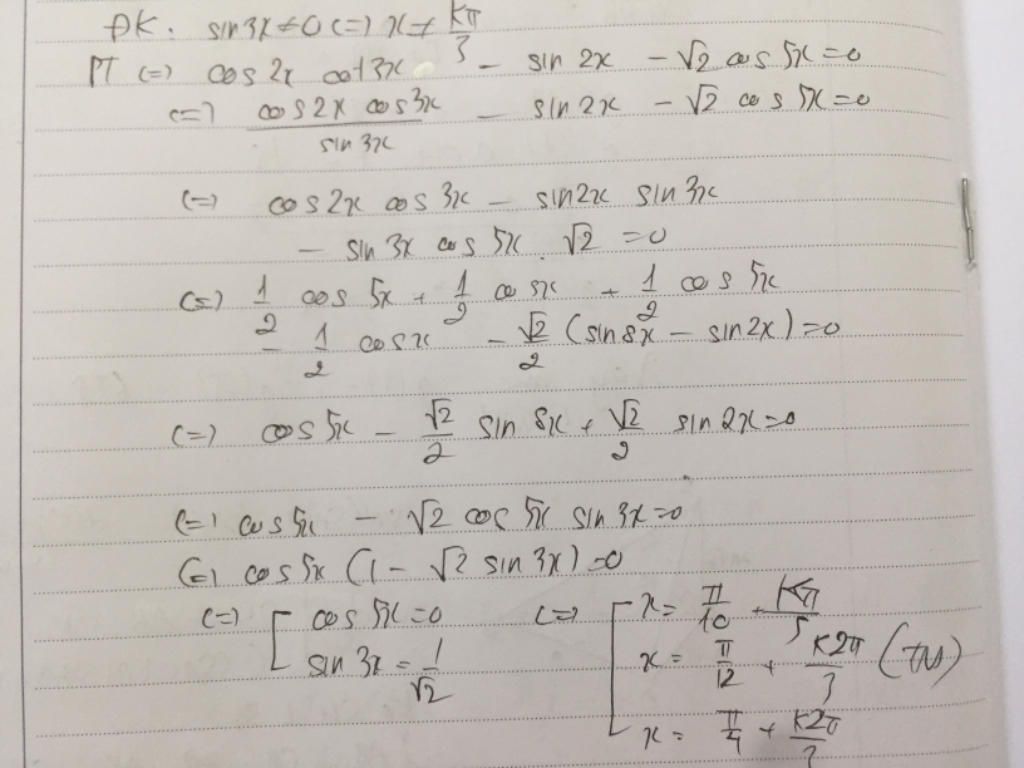 ĐK: sin3x ≠ 0 (=) x ≠ kπ/3
PT (=) cos 2x cot3x - sin 2x - √2 cos 5x = 0
(=) (cos2x cos3x)/(sin 3x) - sin 2x - √2 cos 5x = 0
(=) cos2x cos 3x - sin2x sin 3x
- sin 3x cos 5x . √2 = 0
(=) 1/2 cos 5x + 1/2 cos x + 1/2 cos 5x
- 1/2 cos x - √2/2 (sin8x - sin2x) = 0
(=) cos 5x - √2/2 sin 8x + √2/2 sin 2x = 0
(=) cos 5x - √2 cos 5x sin 3x = 0
(=) cos 5x (1 - √2 sin 3x) = 0
(=) [ cos 5x = 0 (=) [ x = π/10 + kπ/5
sin 3x = 1/√2 x = π/12 + k2π/3 (TM)
x = π/4 + k2π/3